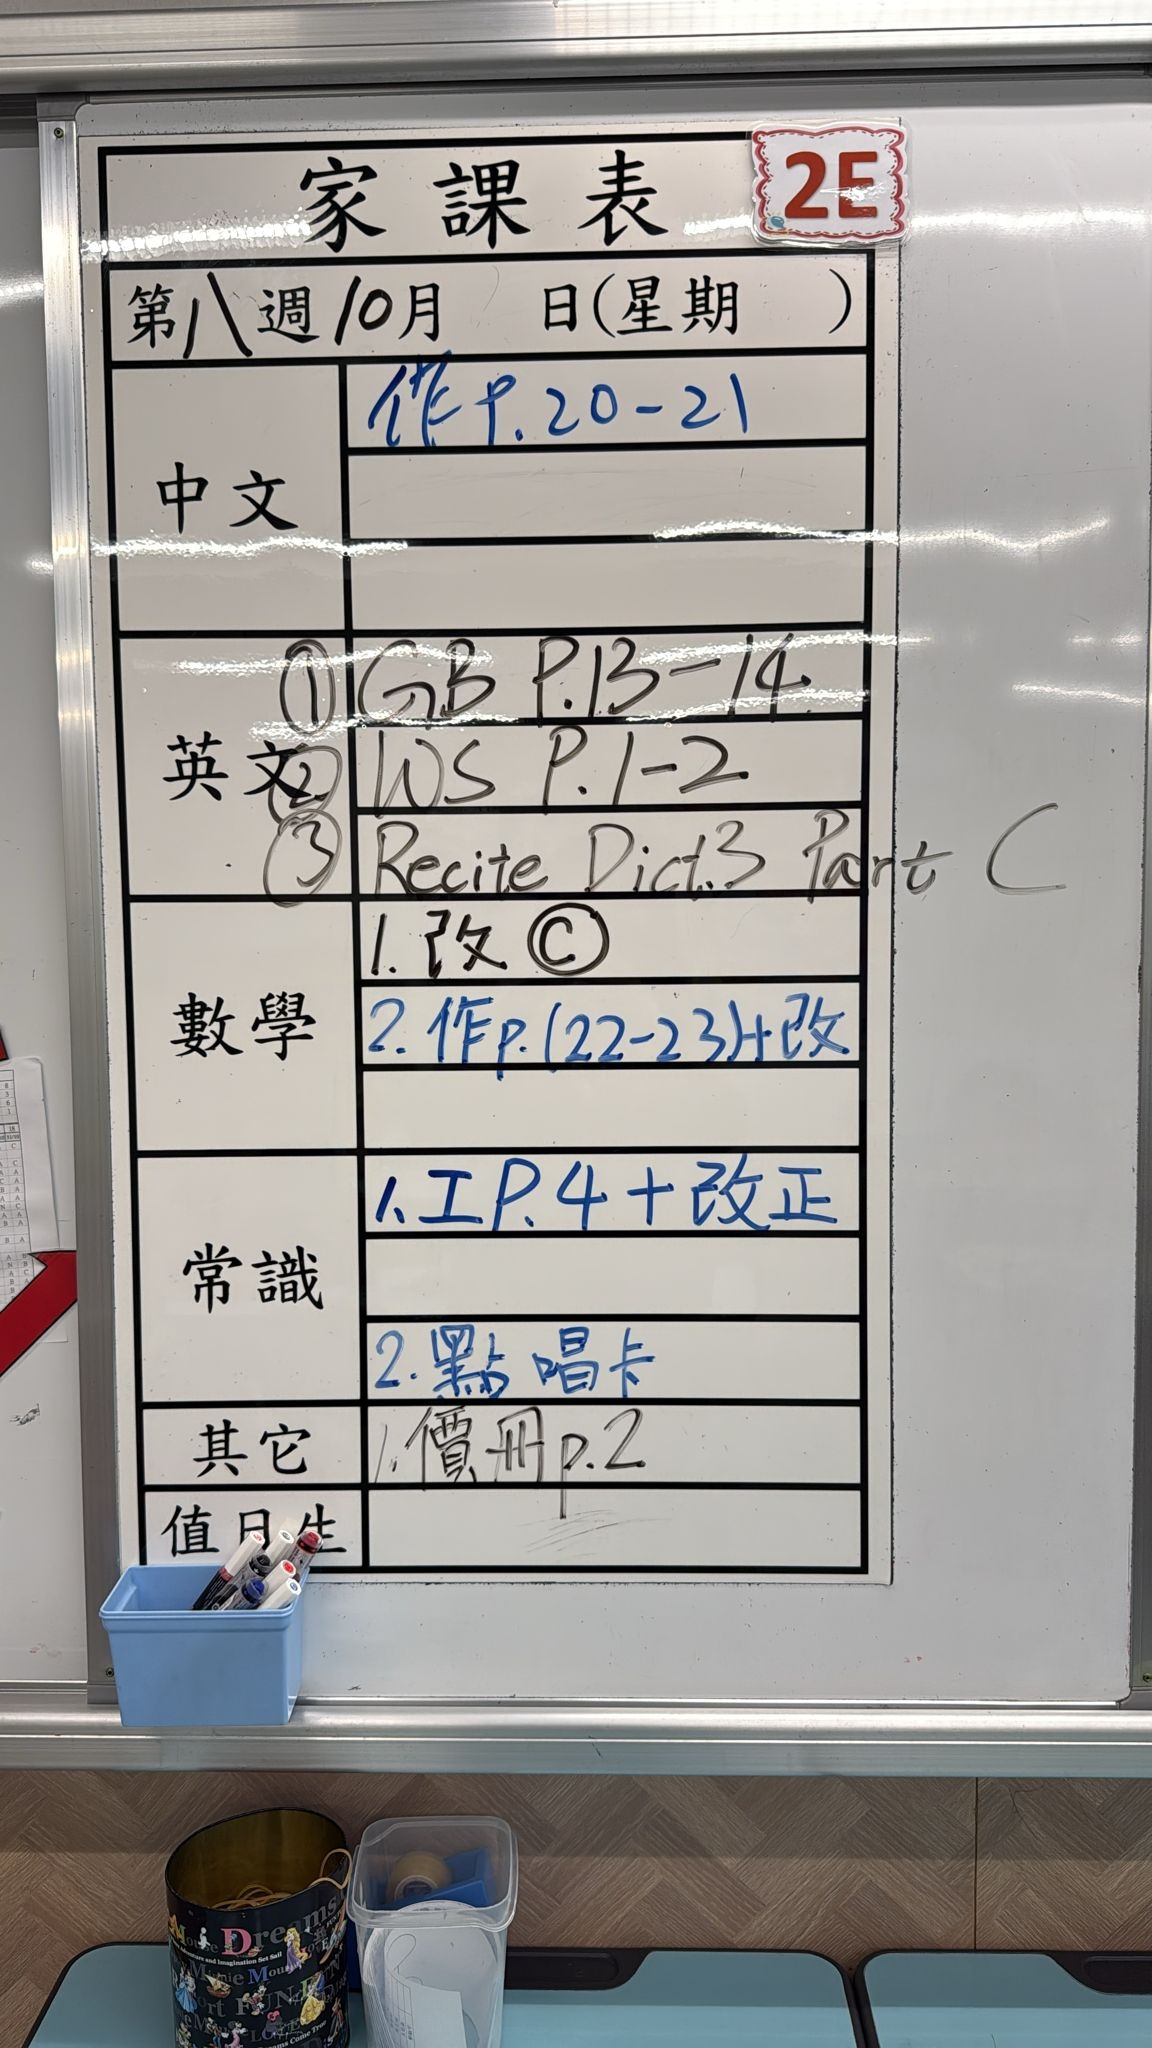 家課表
2E
第八週10月 日(星期 )
中文
作 P.20-21
英文
① GB P.13-14
② WS P.1-2
③ Recite Dict.3 Part C
數學
1. 改 Ⓒ
2. 作p.(22-23)+改
常識
1. 工P.4+改正
2. 點唱卡
其它
1. 價冊p.2
值日生
Dreams
Adventure and Imagination Set Sail
Minnie Mou
FUN
Dreams Come True